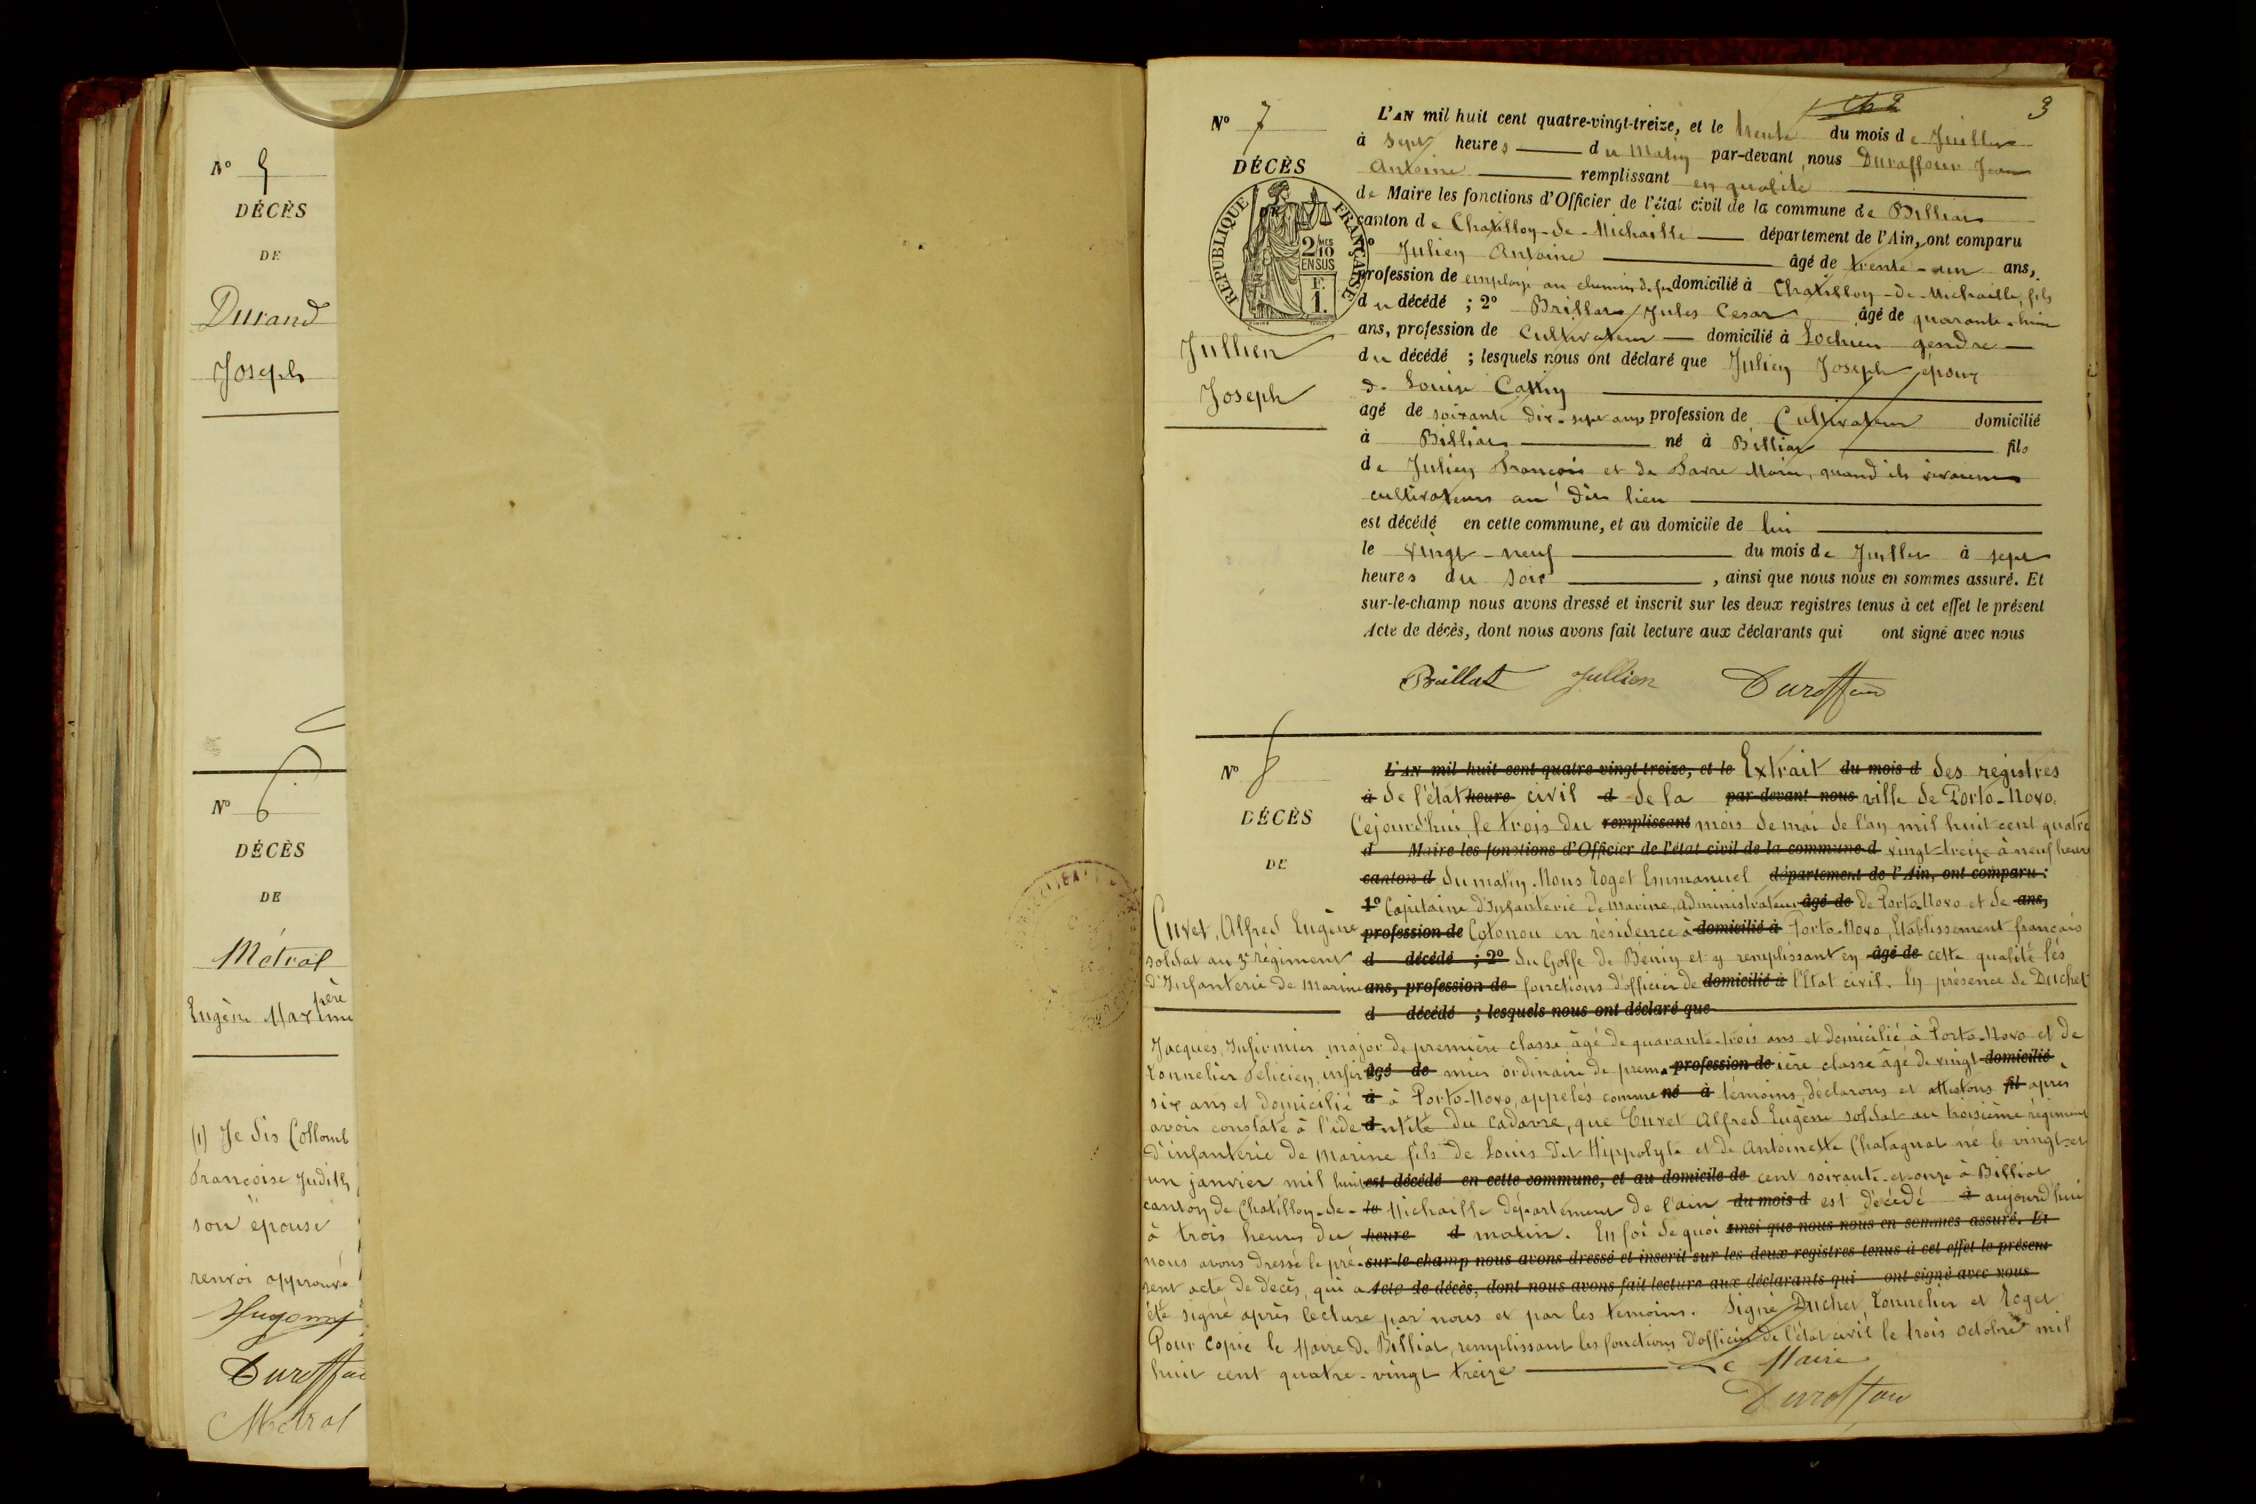 N° 5
DÉCÈS
DE
Durand
Joseph
N° 6
DÉCÈS
DE
Métral
père
Eugène Maxime
(1) Je dis Collomb
Françoise Judith
son épouse
renvoi approuvé
Duraffou
Métral
3
N° 7
DÉCÈS
RÉPUBLIQUE FRANÇAISE
2/10 EN SUS
F. 1.
Jullien
Joseph
L'AN mil huit cent quatre-vingt-treize, et le trente du mois de Juillet
à sept heures du matin par-devant nous Duraffour Jean
Antoine remplissant en qualité
de Maire les fonctions d'Officier de l'état civil de la commune de Billiat
canton de Chatillon-de-Michaille département de l'Ain, ont comparu
1° Julien Antoine âgé de trente-un ans,
profession de employé au chemin de fer domicilié à Chatillon-de-Michaille, fils
du décédé ; 2° Brillat Jules Cesar âgé de quarante-huit
ans, profession de Cultivateur domicilié à Lochieu gendre
du décédé ; lesquels nous ont déclaré que Julien Joseph époux
de Louise
agé de soixante dix-sept ans profession de Cultivateur domicilié
à Billiat né à Billiat fils
de Julien François et de Favre Marie, quand ils vivaient
cultivateurs au dit lieu
est décédé en cette commune, et au domicile de lui
le vingt-neuf du mois de Juillet à sept
heures du soir, ainsi que nous nous en sommes assuré. Et
sur-le-champ nous avons dressé et inscrit sur les deux registres tenus à cet effet le présent
Acte de décès, dont nous avons fait lecture aux déclarants qui ont signé avec nous
Brillat Jullien Duraffour
N° 8
DÉCÈS
DE
Cuvet, Alfred Eugène
soldat au 3e régiment
d'Infanterie de marine
L'AN mil huit cent quatre-vingt-treize, et le Extrait du mois d des registres
à de l'état heure civil d de la par-devant nous ville de Porto-Novo.
Cejourd'hui le trois du remplissant mois de mai de l'an mil huit cent quatre
d Maire les fonctions d'Officier de l'état civil de la commune d vingt-treize à neuf heures
canton d du matin. Nous Roget Emmanuel département de l'Ain, ont comparu :
1° Capitaine d'Infanterie de marine, administrateur âgé de de Porto Novo et de ans,
profession de Cotonou en résidence à domicilié à Porto-Novo, Etablissement français
d décédé ; 2° du Golfe de Bénin et y remplissant en âgé de cette qualité les
ans, profession de fonctions d'officier de domicilié à l'Etat civil. En présence de Duchet
d décédé ; lesquels nous ont déclaré que
Jacques, Infirmier major de première classe âgé de quarante-trois ans et domicilié à Porto-Novo et de
Tonnelier Félicien, infir âgé de mier ordinaire de prem profession de ière classe âgé de vingt domicilié
six ans et domicilié à à Porto-Novo, appelés comme né à témoins, déclarons et attestons fil après
avoir constaté à l'ide d ntité du cadavre, que Cuvet Alfred Eugène soldat au troisième régiment
d'infanterie de marine fils de Louis dit Hippolyte et de Antoinette Chatagnat né le vingt-et
un janvier mil huit est décédé en cette commune, et au domicile de cent soixante-et-onze à Billiat
canton de Chatillon-de- le Michaille département de l'ain du mois d est décédé à aujourd'hui
à trois heures du heure d matin. En foi de quoi ainsi que nous nous en sommes assuré. Et
nous avons dressé le pré- sur-le-champ nous avons dressé et inscrit sur les deux registres tenus à cet effet le présent
sent acte de décès, qui a Acte de décès, dont nous avons fait lecture aux déclarants qui ont signé avec nous
été signé après lecture par nous et par les témoins. Signé Duchet, Tonnelier et Roget
Pour copie le Maire de Billiat, remplissant les fonctions d'officier de l'état civil le trois octobre mil
huit cent quatre-vingt treize Le Maire
Duraffour